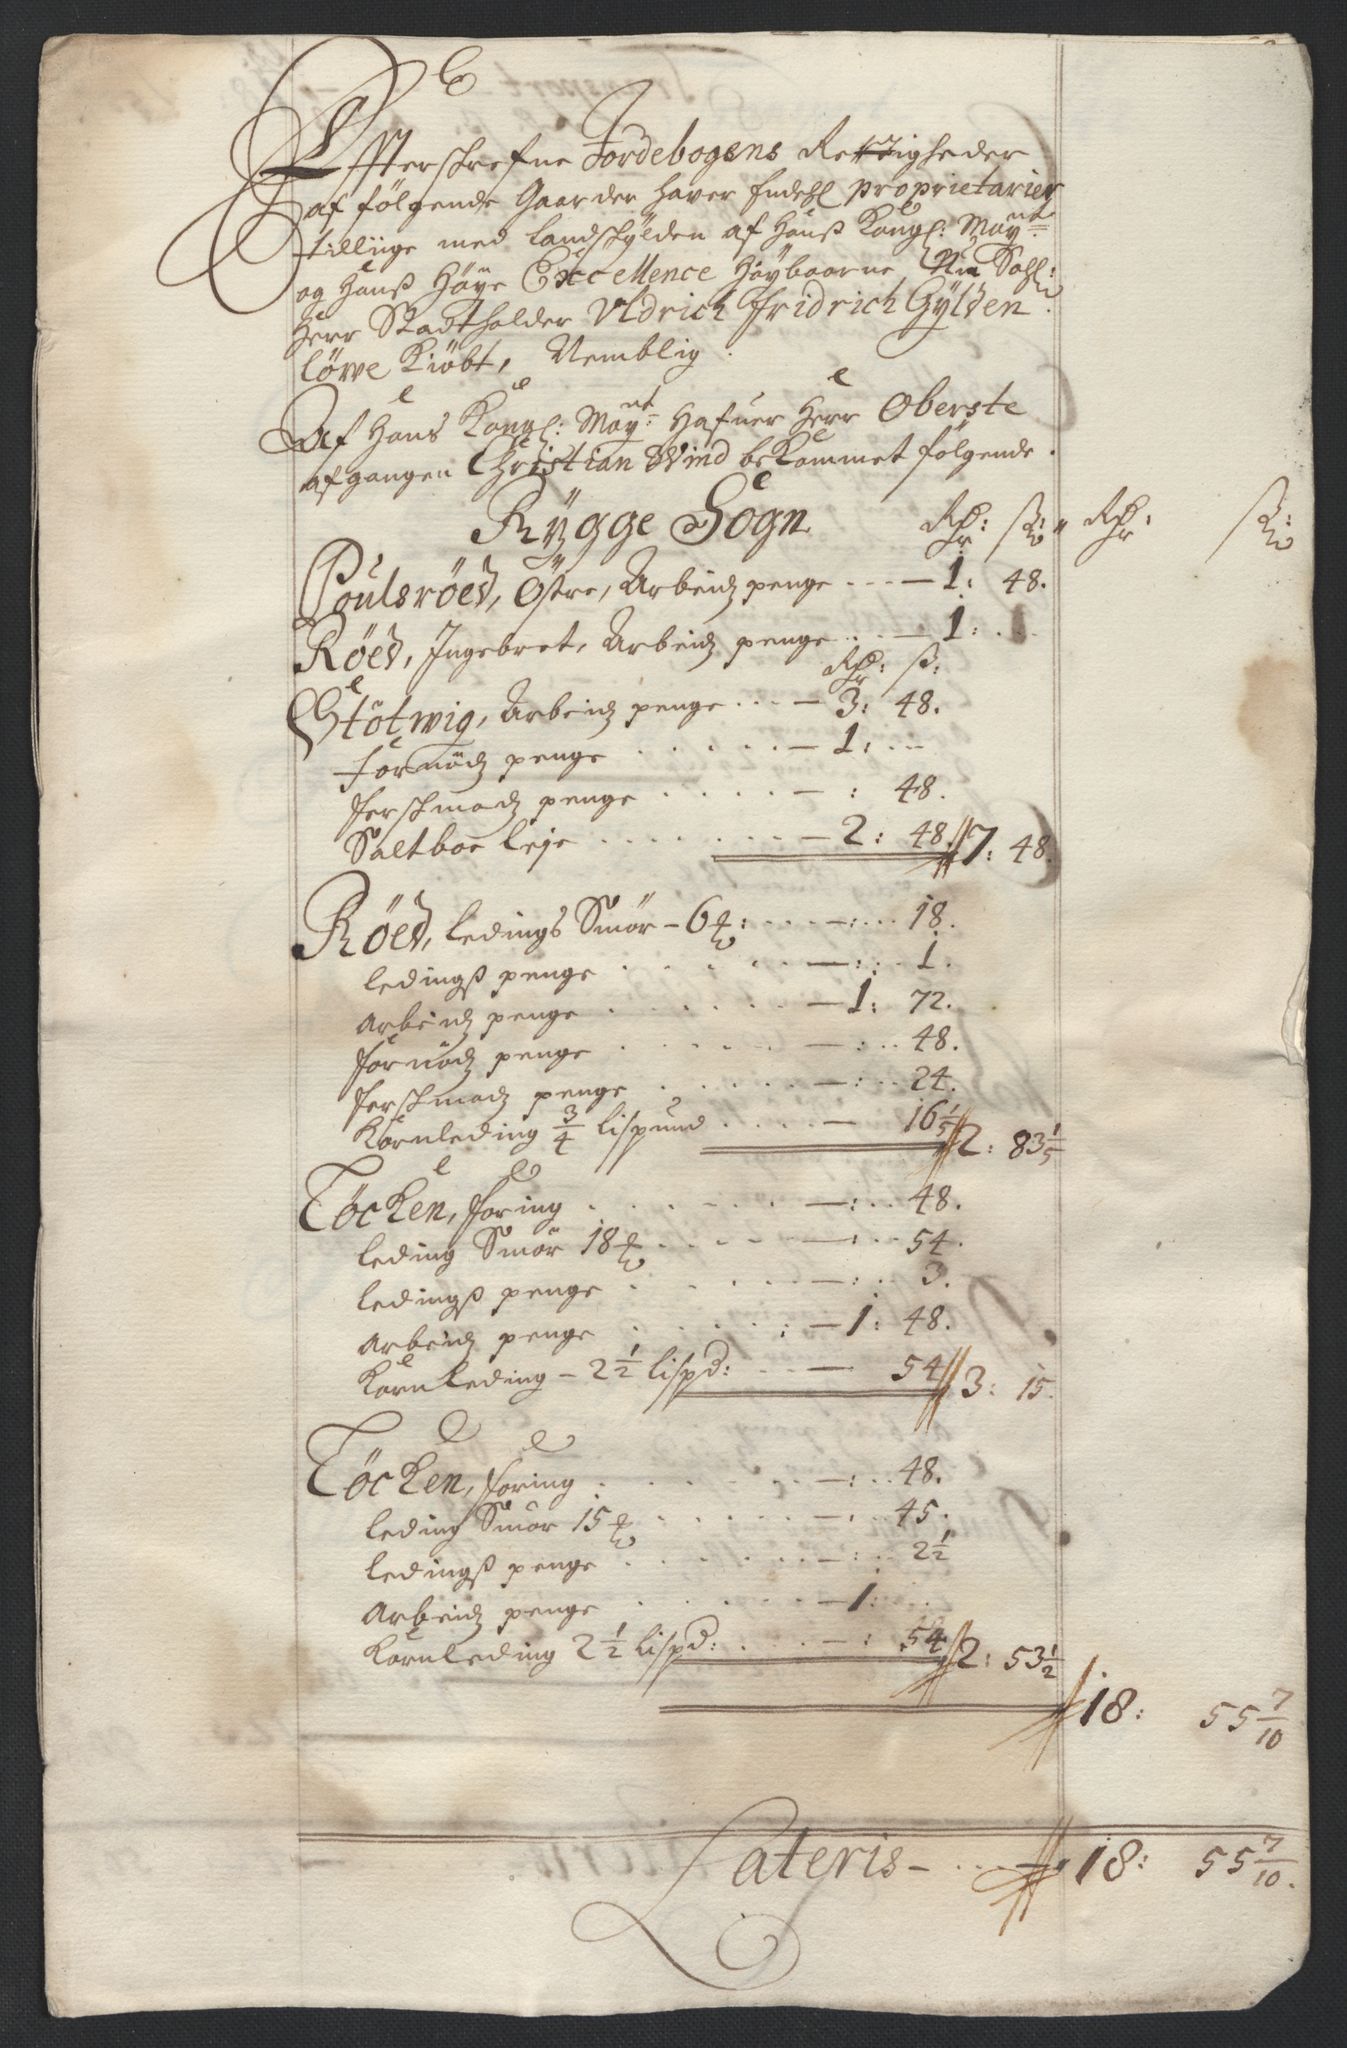 Effterschrefne Jordebogens Rettigheder
af fölgende Gaarder hafver Endehl proprietarier
tilliige med Landschÿlden af Hanß Kongl: Maÿt:
og Hanß Höÿe Excellence Höÿbaarne
Herr Stadtholder Uldrich Fridrich Gÿlden
löwe Kiöbt, Nemblig:
Af Hans Kongl: Maÿt: Hafuer Herr Oberste
afgangen Christian Wind bekommet fölgende.
Rÿgge Sogn Rdr: ß: Rdr: ß:
Poulsröed, Östre, Arbeidz penge - - - 1: 48.
Röed, Ingebret, Arbeidz penge - - - 1: - -
Rdr: ß:
Støtwig, Arbeidz penge - - - 3: 48.
Fornödz penge - - - 1: - -
ferschmadz penge - - - : 48.
Saltboe leje - - - 2: 48. // 7: 48.
Röed, ledings Smör - 6 ℔: - - - 18.
ledingß penge - - - 1.
Arbeidz penge - - - 1: 72.
fornödz penge - - - 48.
ferschmadz penge - - - 24.
Kornleding 3/4 lispund - - - 16 1/5 // 2: 83 1/5
Töcken, foring - - - 48.
leding Smör 18 ℔ - - - 54.
ledingß penge - - - 3.
Arbeidz penge - - - 1: 48.
Kornleding - 2 1/2 lispd: - - - 54 // 3: 15.
Töcken, foring - - - 48.
leding Smör 15 ℔ - - - 45.
ledingß penge - - - 2 1/2
Arbeidz penge - - - 1: - -
Kornleding 2 1/2 lispd: - - - 54 // 2: 53 1/2
18: 55 7/10
Lateris - - - 18: 55 7/10.